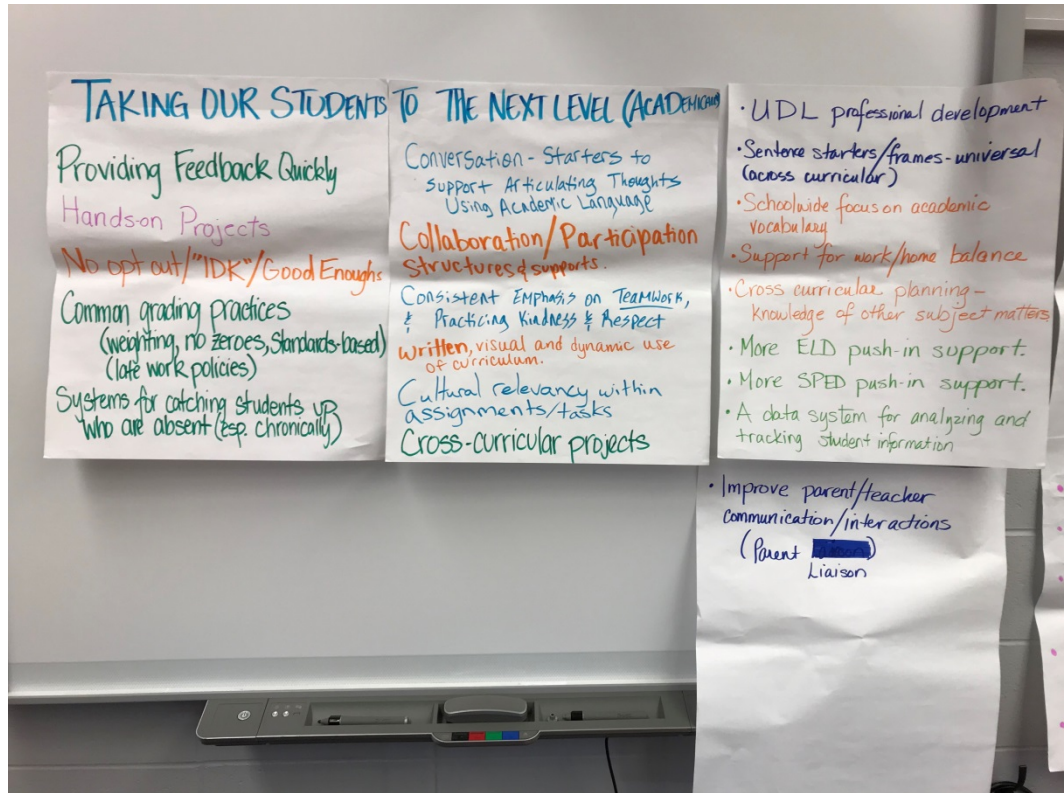 TAKING OUR STUDENTS TO THE NEXT LEVEL (ACADEMICALLY)
Providing Feedback Quickly
Hands-on Projects
No opt out/"IDK"/Good Enoughs
Common grading practices
(weighting, no zeroes, Standards-based)
(late work policies)
Systems for catching students up
who are absent (esp. chronically)
Conversation - Starters to
Support Articulating Thoughts
Using Academic Language
Collaboration/Participation
Structures & supports.
Consistent Emphasis on TeamWork,
& Practicing Kindness & Respect
written, visual and dynamic use
of curriculum.
Cultural relevancy within
assignments/tasks
Cross-curricular projects
• UDL professional development
• Sentence starters/frames - universal
(across curricular)
• Schoolwide focus on academic
vocabulary
• Support for work/home balance
• Cross curricular planning –
knowledge of other subject matters.
• More ELD push-in support.
• More SPED push-in support.
• A data system for analyzing and
tracking student information
• Improve parent/teacher
communication/interactions
(Parent )
Liaison